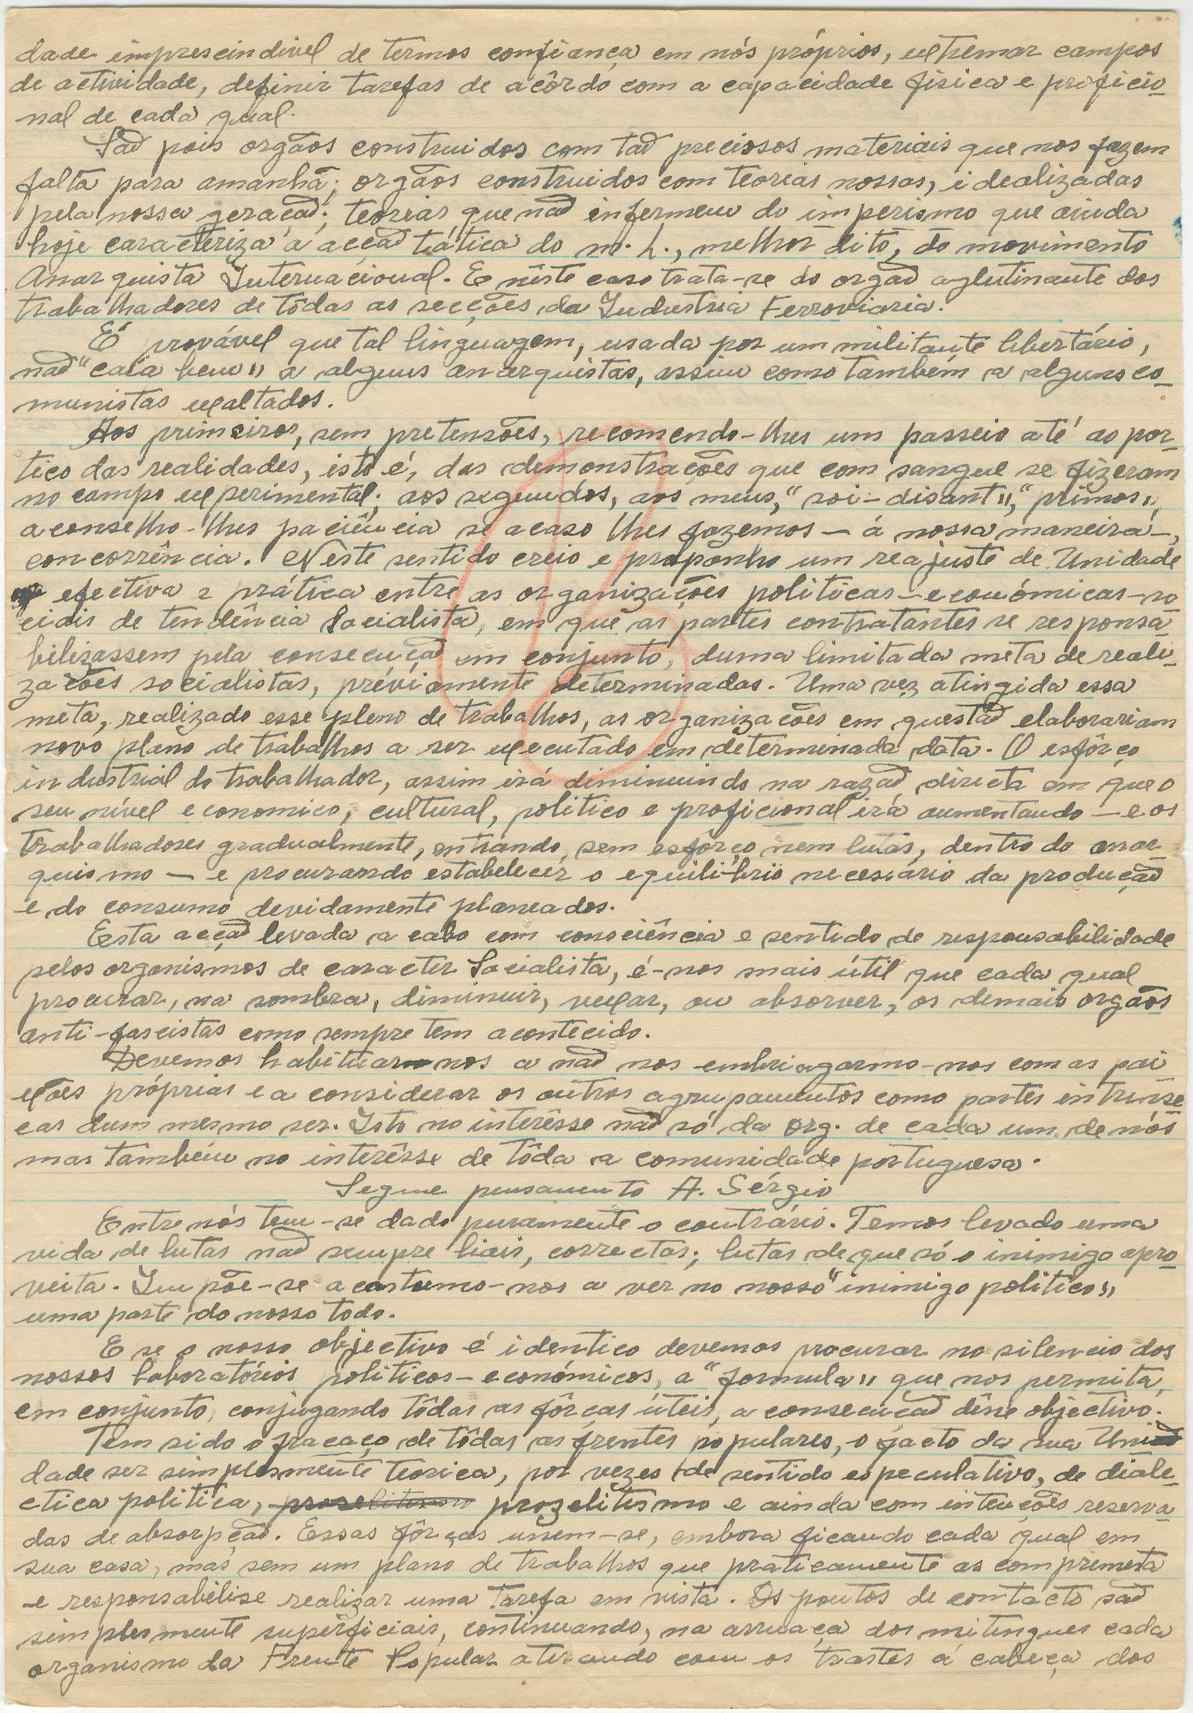 dade imprescindivel de termos confiança em nós próprios, extremar campos
de actividade, definir tarefas de acôrdo com a capacidade fisica e proficio-
nal de cada qual.
Saõ pois orgãos construidos com taõ preciosos materiais que nos fazem
falta para amanhã; orgãos construidos com teorias nossas, idealizadas
pela nossa geraçaõ; teorias que naõ enfermem do imperismo que ainda
hoje caracteriza a acçaõ tática do m. L., melhor dito, do movimento
Anarquista Internacional. E nêste caso trata-se do orgaõ aglutinante dos
trabalhadores de tôdas as secções da Industria Ferroviaria.
É provável que tal linguagem, usada por um militante libertário,
naõ "caia bem" a alguns anarquistas, assim como tambem a alguns co-
munistas exaltados.
Aos primeiros, sem pretensões, recomendo-lhes um passeio até ao por-
tico das realidades, isto é, das demonstrações que com sangue se fizeram
no campo experimental; aos segundos, aos meus, "soi-disant", "primos",
aconselho-lhes paciência se acaso lhes fazemos — á nossa maneira —,
concorrência. Nêste sentido creio e proponho um reajuste de Unidade
efectiva e prática entre as organizações politicas-económicas-so
ciais de tendência Socialista, em que as partes contratantes se responsa
bilizassem pela consecuçaõ em conjunto, duma limitada meta de reali-
zações socialistas, préviamente determinadas. Uma vez atingida essa
meta, realizado esse pleno de trabalhos, as organizações em questaõ elaborariam
novo plano de trabalhos a ser executado em determinada data. O esfôrço
industrial do trabalhador, assim irá diminuindo na razaõ directa em que o
seu nível economico, cultural, politico e proficional irá aumentando — e os
trabalhadores gradualmente, entrando, sem esfôrço nem lutas, dentro do anar-
quismo — e procurando estabelecer o equilibrio necessário da produçaõ
e do consumo devidamente planeados.
Esta acçaõ levada a cabo com consciência e sentido de responsabilidade
pelos organismos de caracter Socialista, é-nos mais útil que cada qual
procurar, na sombra, diminuir, vexar, ou absorver, os demais orgãos
anti-fascistas como sempre tem acontecido.
Devemos habituar-nos a naõ nos embriagarmo-nos com as pai
xões próprias e a considerar os outros agrupamentos como partes intrinse
cas dum mesmo ser. Isto no interêsse naõ só da org. de cada um de nós
mas tambêm no interêsse de tôda a comunidade portuguesa.
Segue pensamento A. Sérgio
Entre nós tem-se dado puramente o contrário. Temos levado uma
vida de lutas naõ sempre liais, correctas; lutas de que só o inimigo apro-
veita. Impõe-se acostumo-nos a ver no nosso "inimigo politico"
uma parte do nosso todo.
E se o nosso objectivo é identico devemos procurar no silencio dos
nossos laboratórios politicos-económicos, a "formula" que nos permita,
em conjunto, conjugando tôdas as fôrças úteis, a consecuçaõ dêsse objectivo.
Tem sido o fracaço de tôdas as frentes populares, o facto da sua Uni
dade ser simplesmente teorica, por vezes de sentido especulativo, de diale-
ctica politica, prozelitismo e ainda com intenções reserva-
das de absorpçaõ. Essas fôrças unem-se, embora ficando cada qual em
sua casa, mas sem um plano de trabalhos que praticamente as comprometa
e responsabilise realizar uma tarefa em vista. Os pontos de contacto saõ
simplesmente superficiais, continuando, na arruaça dos mitingues cada
organismo da Frente Popular atirando com os trastes á cabeça dos